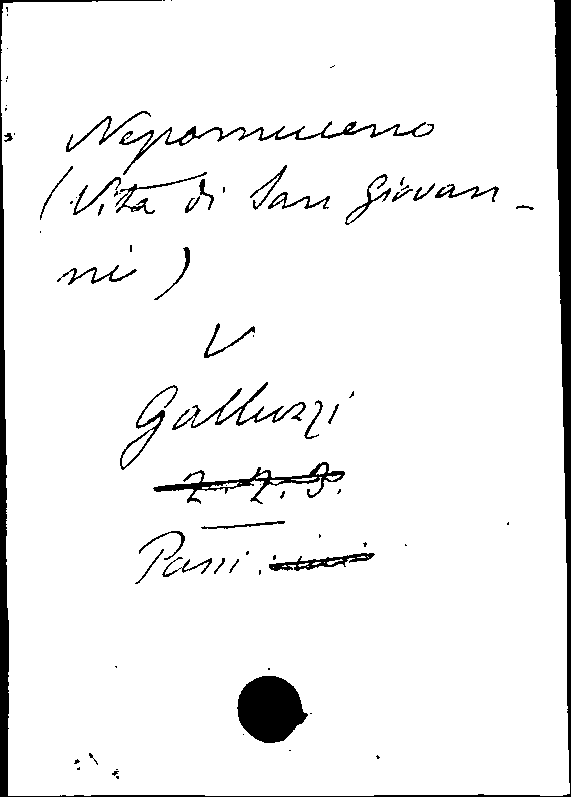 Nepomuceno
(Vita di San Giovan-
ni)
V
Galluzzi
2. 2. 3.